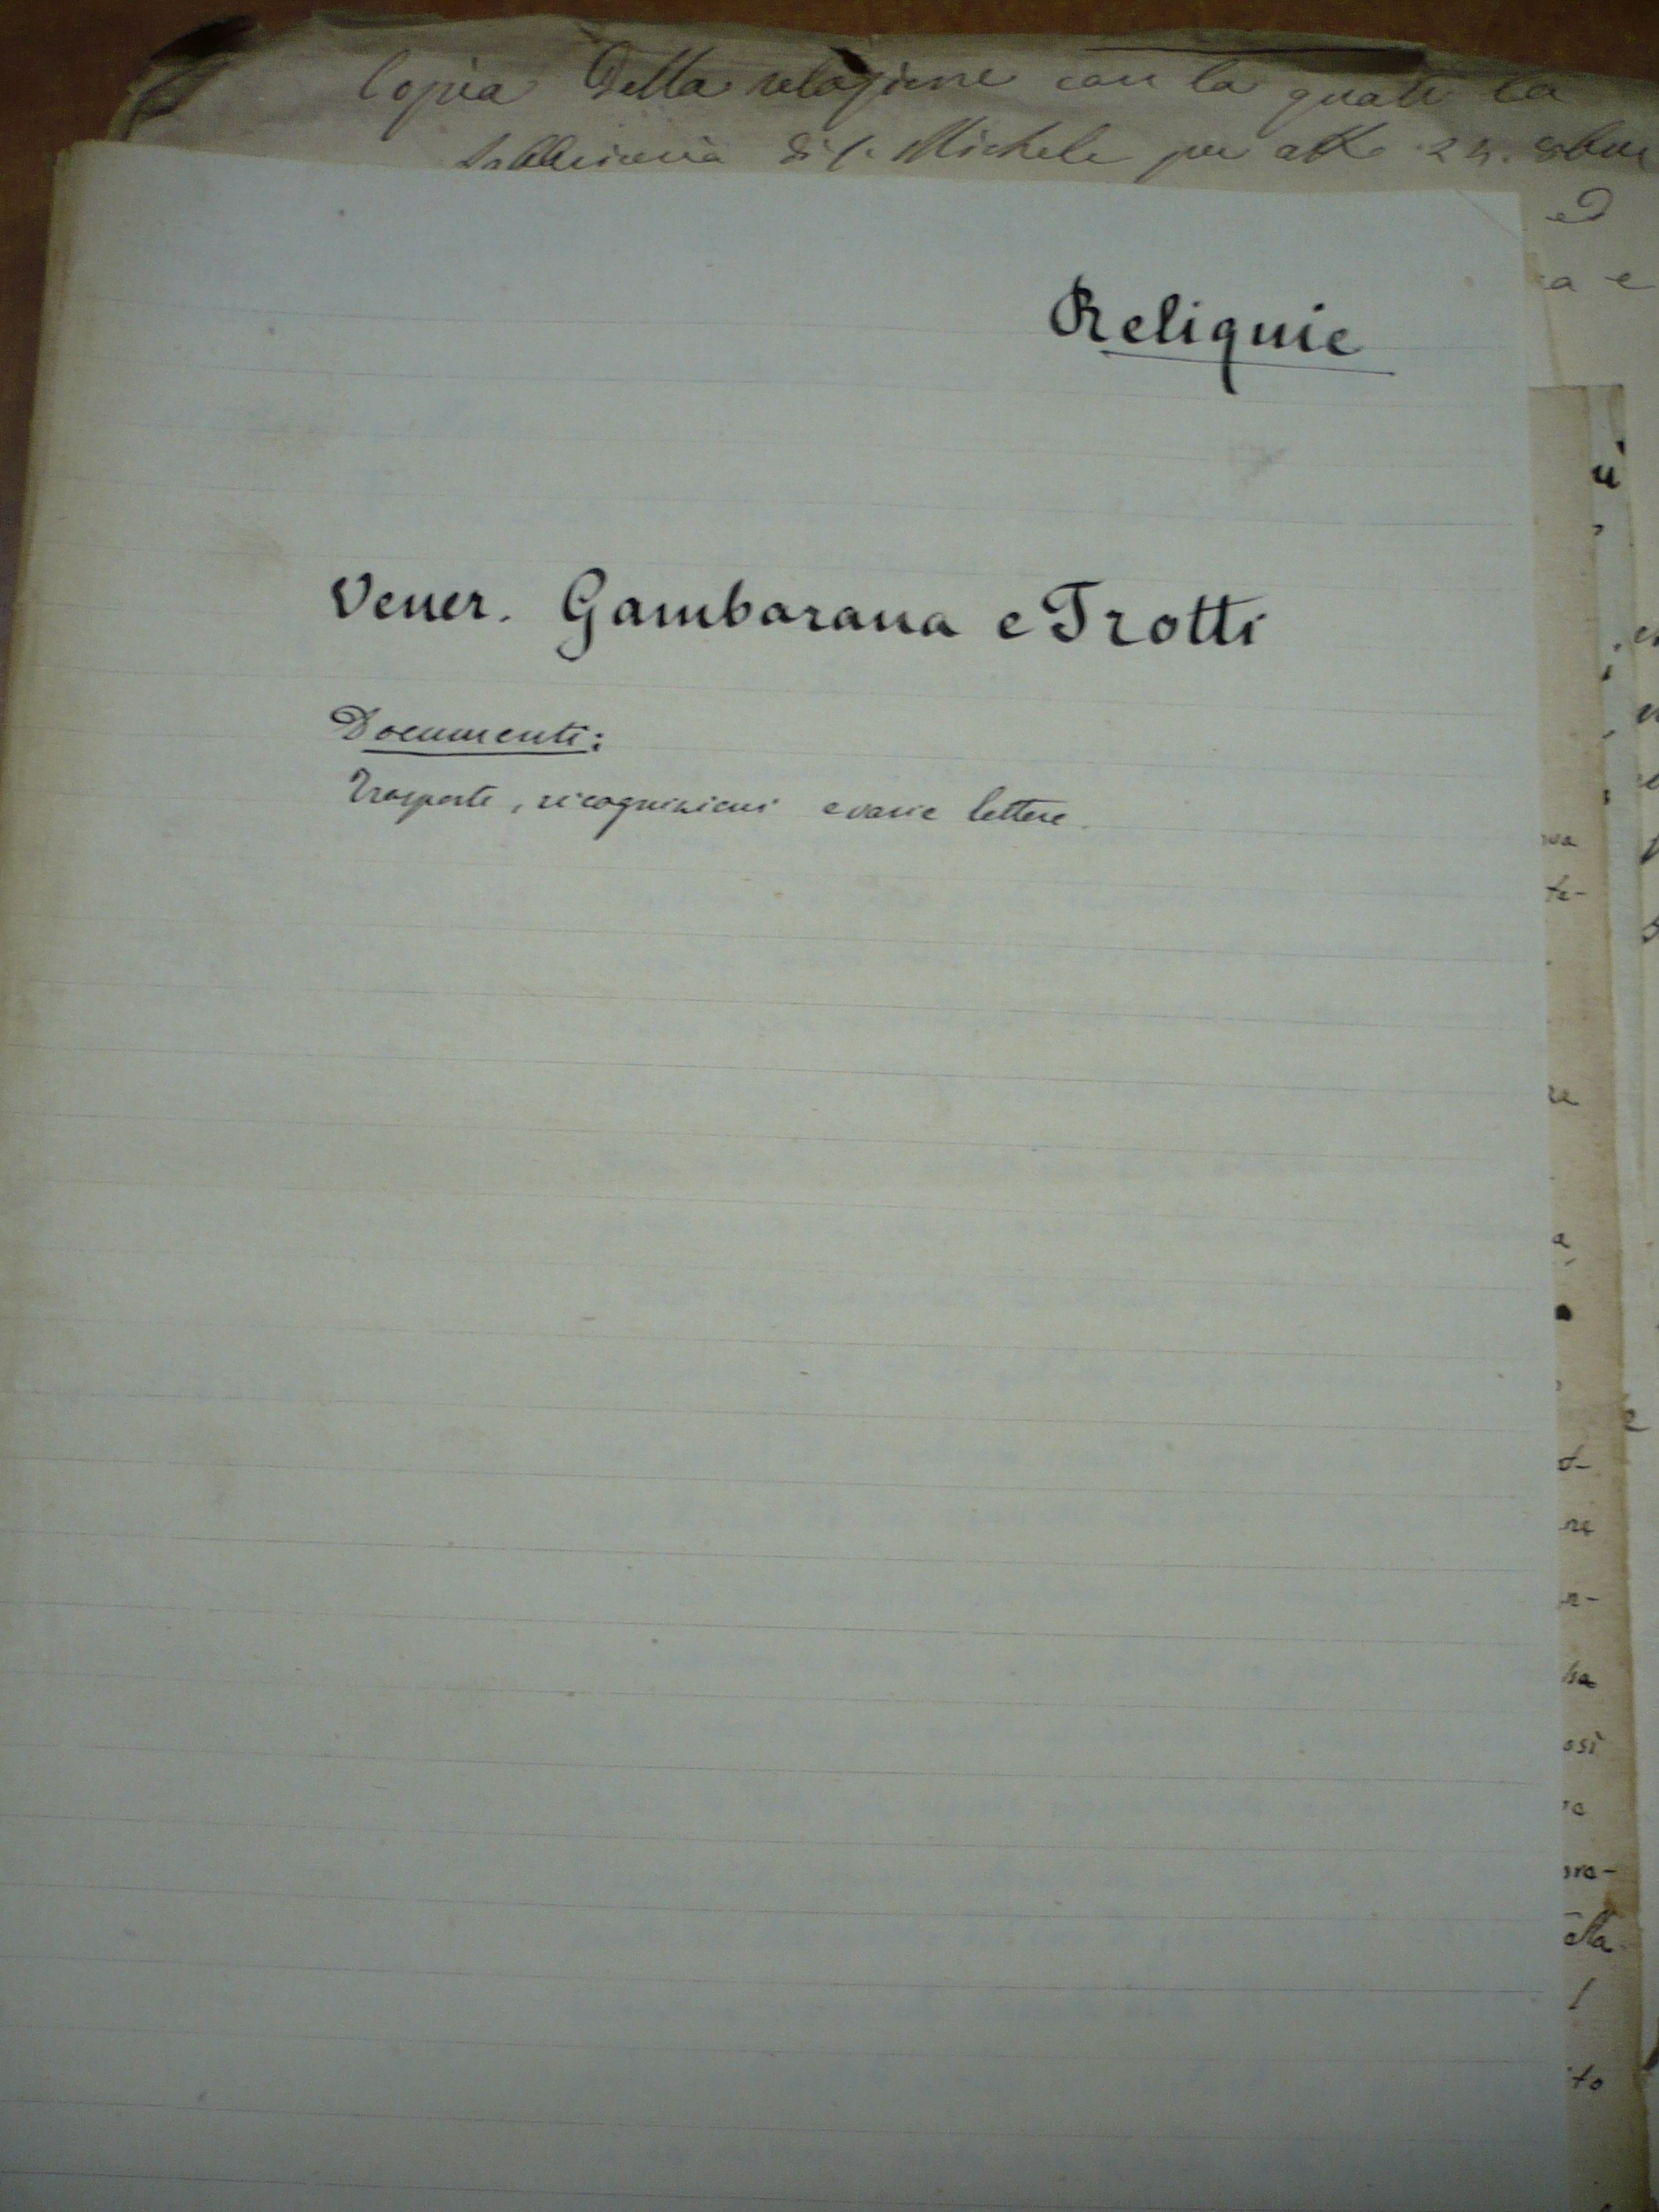 Copia della relazione con la quale la
Fabbriceria di S. Michele per atto 24. 8bre
Reliquie
Vener. Gambarana e Trotti
Documenti:
Trasporto, ricognizioni e varie lettere.